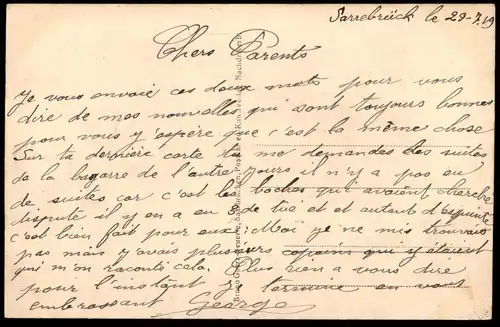 Sarrebrück le 29-7.19
Chers Parents
Je vous envoie ces deux mots pour vous
dire de mes nouvelles qui sont toujours bonnes
pour vous j'espère que c'est la même chose
Sur ta dernière carte tu me demandes des suites
de la bagarre de l'autre jours il n'y a pas eu
de suites car c'est les boches qui avaient cherché
dispute il y en a eu 3 de tué et autant d'esquinté
c'est bien fait pour eux. Moi je ne mis trouvais
pas mais j'avais plusieurs copains qui y étaient
qui m'on raconté cela. Plus rien a vous dire
pour l'instant je termine en vous
embrassant George